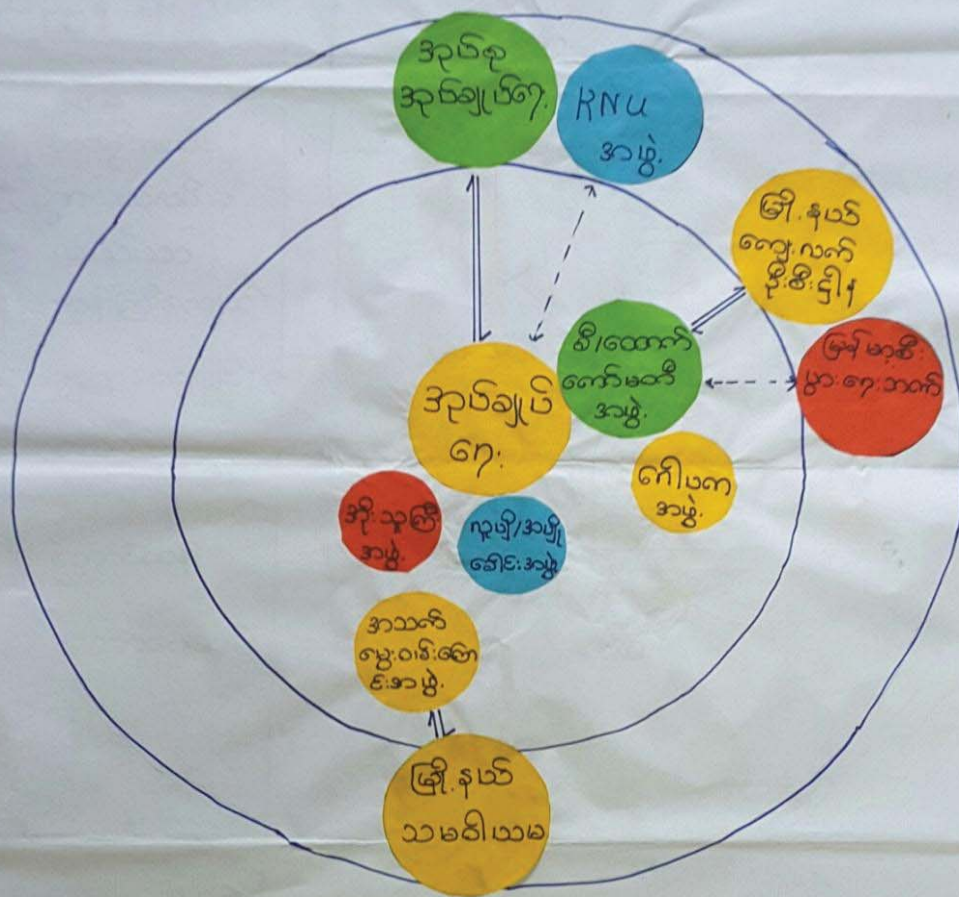 အုပ်စု
အုပ်ချုပ်ရေး
KNU
အဖွဲ့
မြို့နယ်
ကျေးလက်
ဦးစီးဌါန
မြန်မာ့စီး
ပွားရေးဘဏ်
စီ/ထောက်
ကော်မတီ
အဖွဲ့
အုပ်ချုပ်
ရေး
ဂေါပက
အဖွဲ့
အိုးသူကြီး
အဖွဲ့
လူပျို/အပျို
ခေါင်းအဖွဲ့
အသက်
မွေးဝမ်းကြော
င်းအဖွဲ့
မြို့နယ်
သမဝါယမ